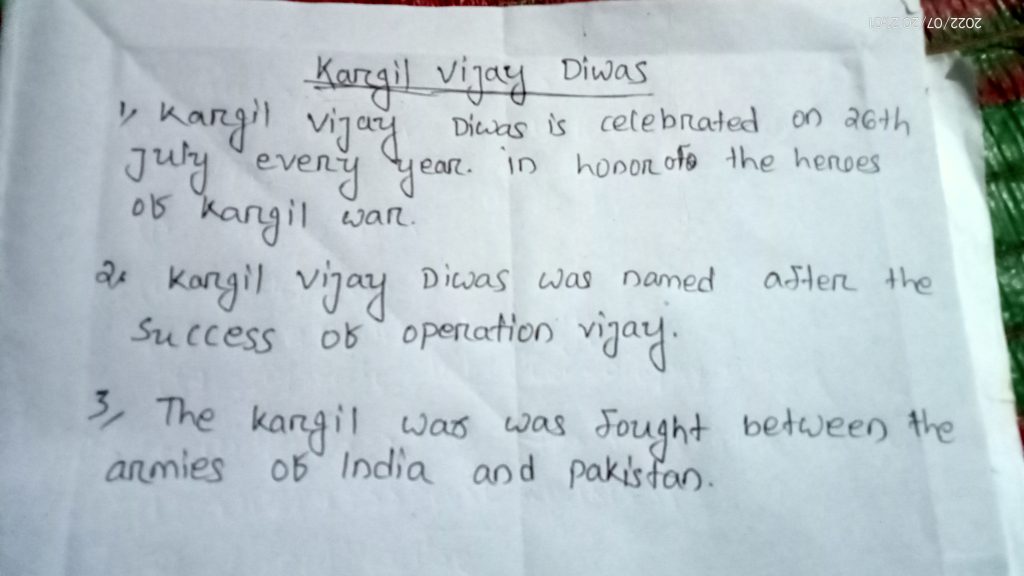 2022/07/20 21:01
Kargil Vijay Diwas
1, Kargil Vijay Diwas is celebrated on 26th
July every year. in honor of the heroes
of Kargil war.
2. Kargil Vijay Diwas was named after the
Success of operation vijay.
3, The Kargil was was fought between the
armies of India and pakistan.